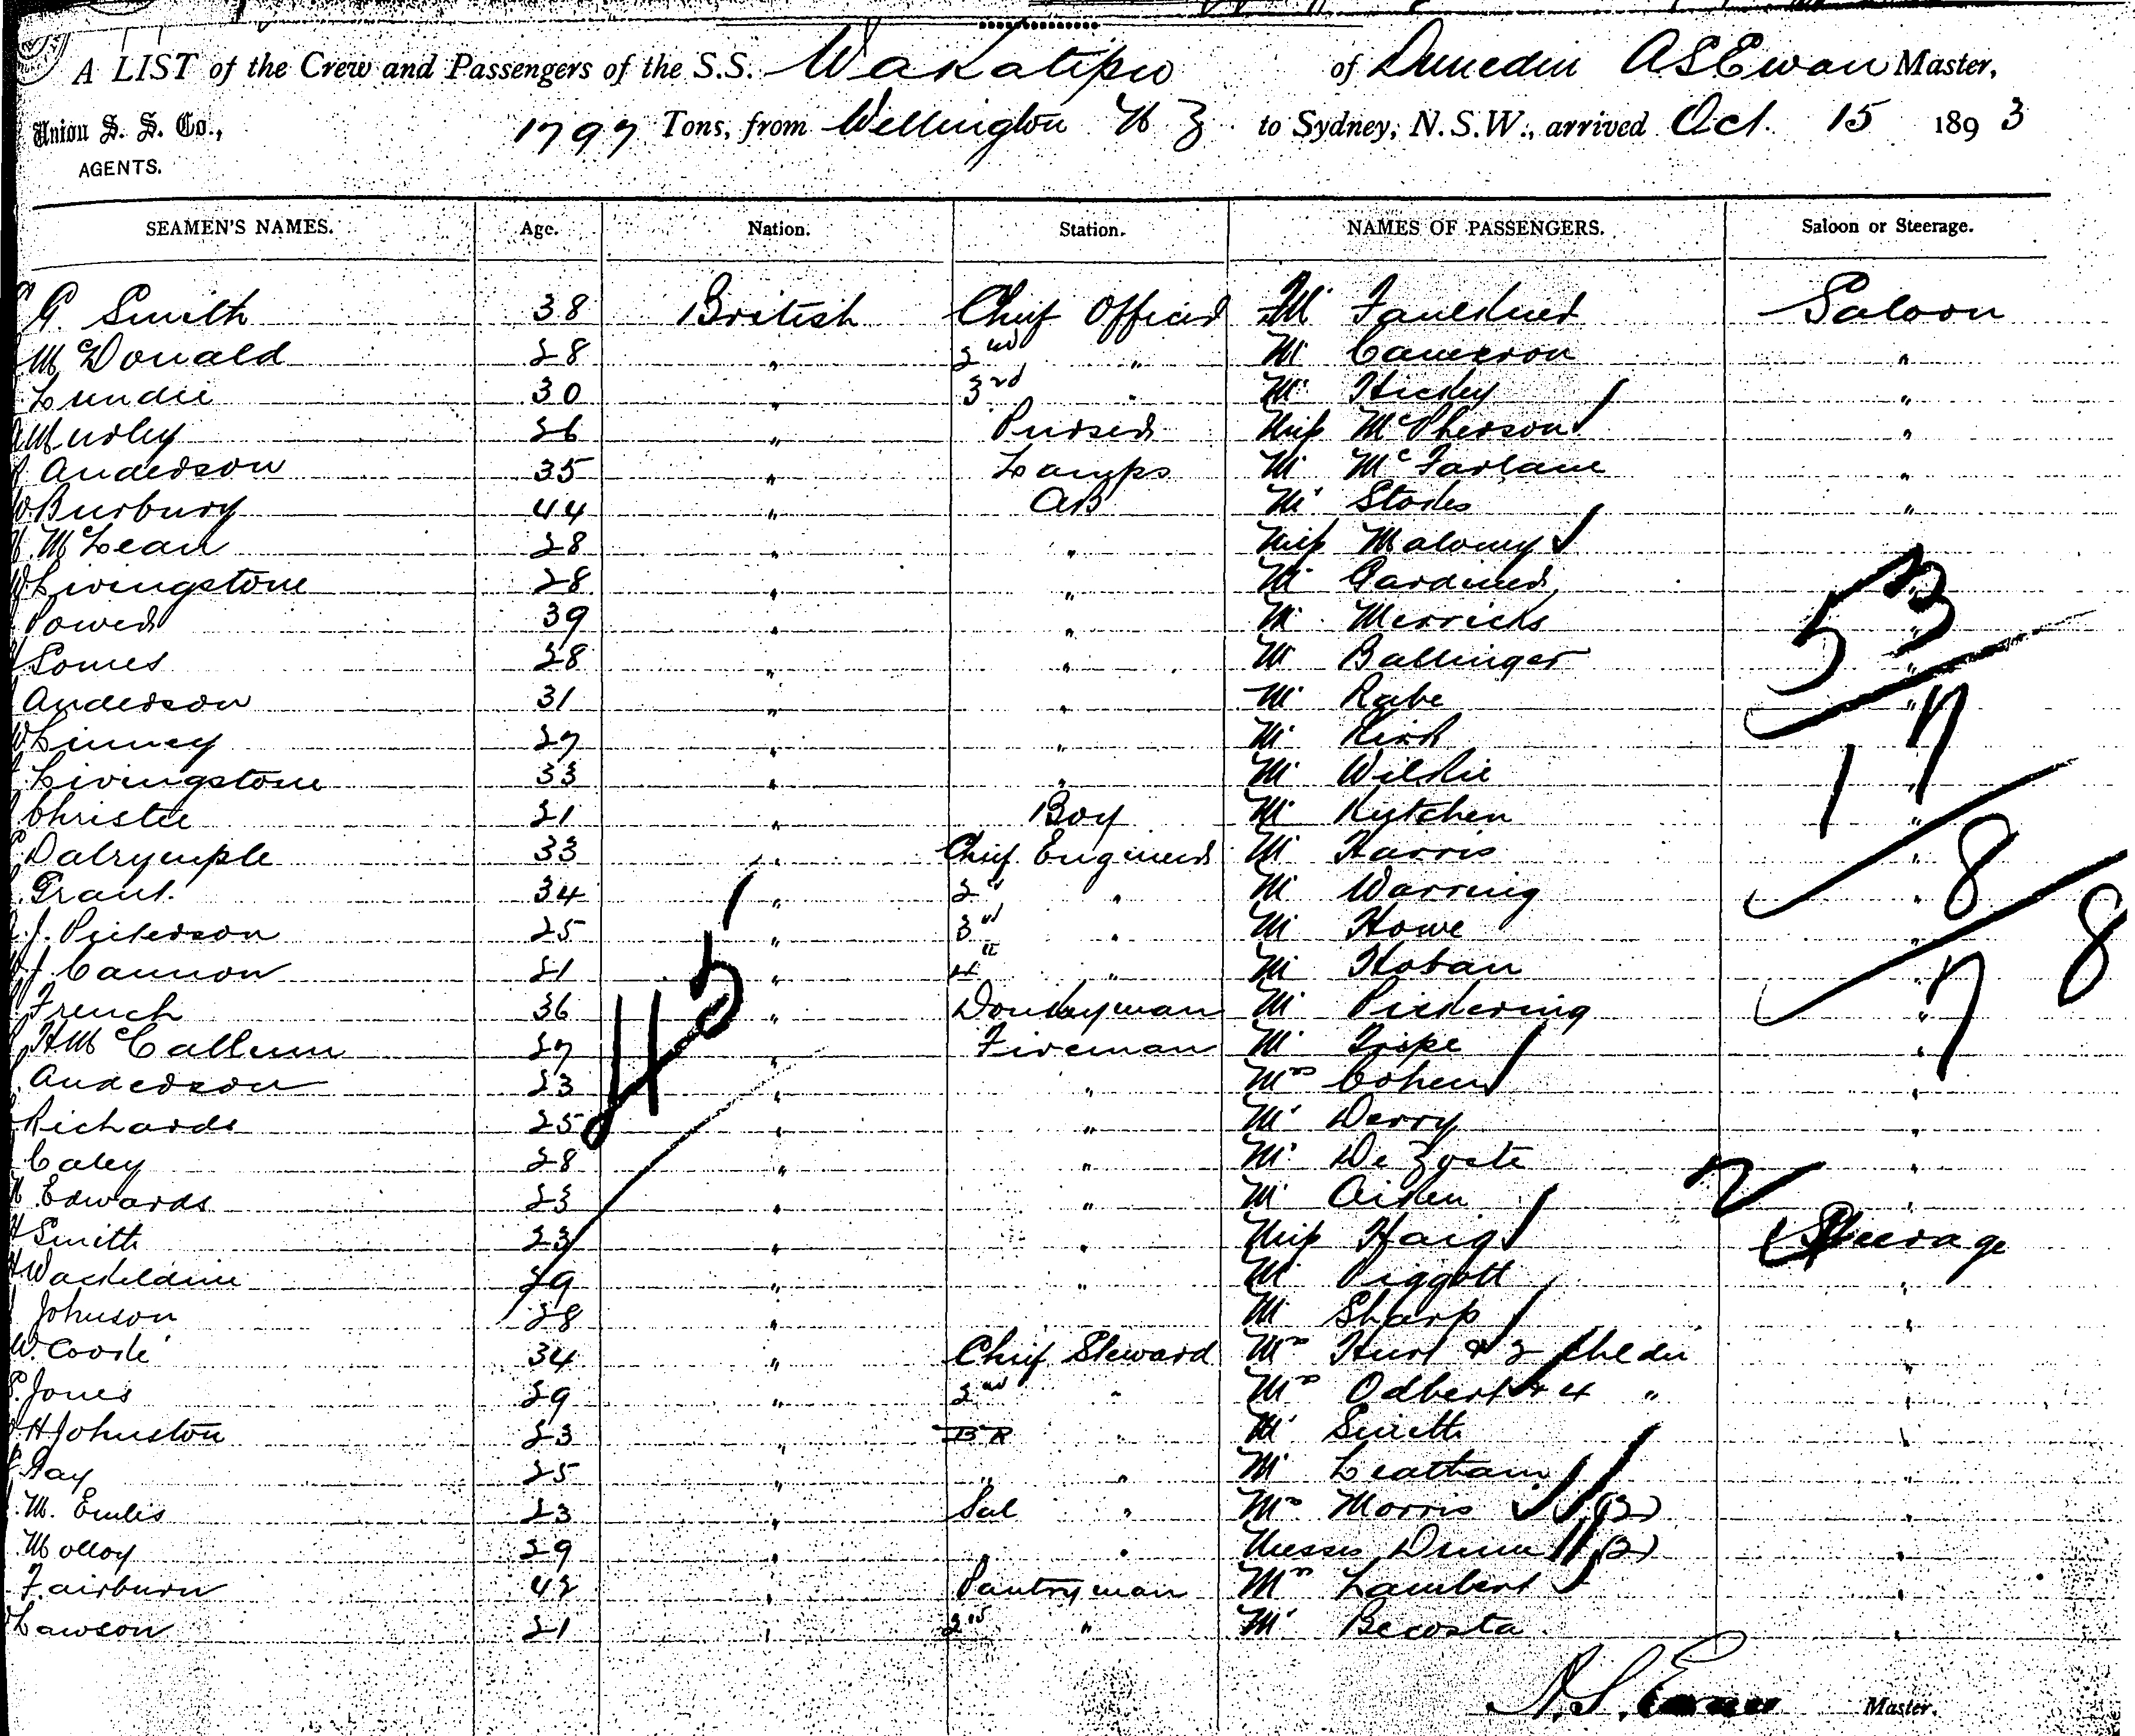 A LIST of the Crew and Passengers of the S.S. Wakatipu of Dunedin A S Ewan Master,
Union S. S. Co., 1797 Tons, from Wellington N Z to Sydney, N.S.W., arrived Oct. 15 1893
AGENTS.
SEAMEN'S NAMES. Age. Nation. Station. NAMES OF PASSENGERS. Saloon or Steerage.
G. Smith 38 British Chief Officer Mr Faulkner Saloon
McDonald 28 " 2nd " Mr Cameron "
Lundie 30 " 3rd " Mr Hickey "
26 " Purser Miss McPherson "
Anderson 35 " Lamps Mr McFarlane "
Burbury 44 " AB Mr Stokes "
McLean 28 " " Miss Malony "
Livingstone 28 " " Mr Gardiner "
Power 39 " " Mr Merricks "
Somes 28 " " Mr Ballinger "
Anderson 31 " " Mr Rabe "
Linney 27 " " Mr Kirk "
Livingstone 33 " " Mr Wilkie "
Christie 21 " Boy Mr Kutchen "
Dalrymple 33 " Chief Engineer Mr Harris "
Grant. 34 " 2nd " Mr Warring "
J. Peterson 25 " 3rd " Mr Howe "
J. Cannon 21 " 4th " Mr Hoban "
French 36 " Donkeyman Mr Pickering "
H McCallum 27 " Fireman Mr Tripe "
Anderson 23 " " Mrs Cohen "
Richards 25 " " Mr Derry "
Caley 28 " " Mr De Zoete "
Edwards 23 " " Mr Aiken "
Smith 23 " " Miss Haig Steerage
29 " " Mr Piggott "
Johnson 28 " Mr Sharp "
W. Coode 34 " Chief Steward Mrs Hurt & 2 "
Jones 29 " 2nd " Mrs Odbert & 4 " "
H Johnston 23 " BR " Mr Smith
Gay 25 " " " Mr Leatham "
M. Eales 23 " Sal " Mrs Morris (2) "
Molloy 29 " " " Messrs Dunn (2) "
Fairburn 42 " Pantryman Mrs Lambert "
Lawson 21 " 2nd " Mr Becosta "
53
17
8
78
7
45
2
A. S. Ewan Master.